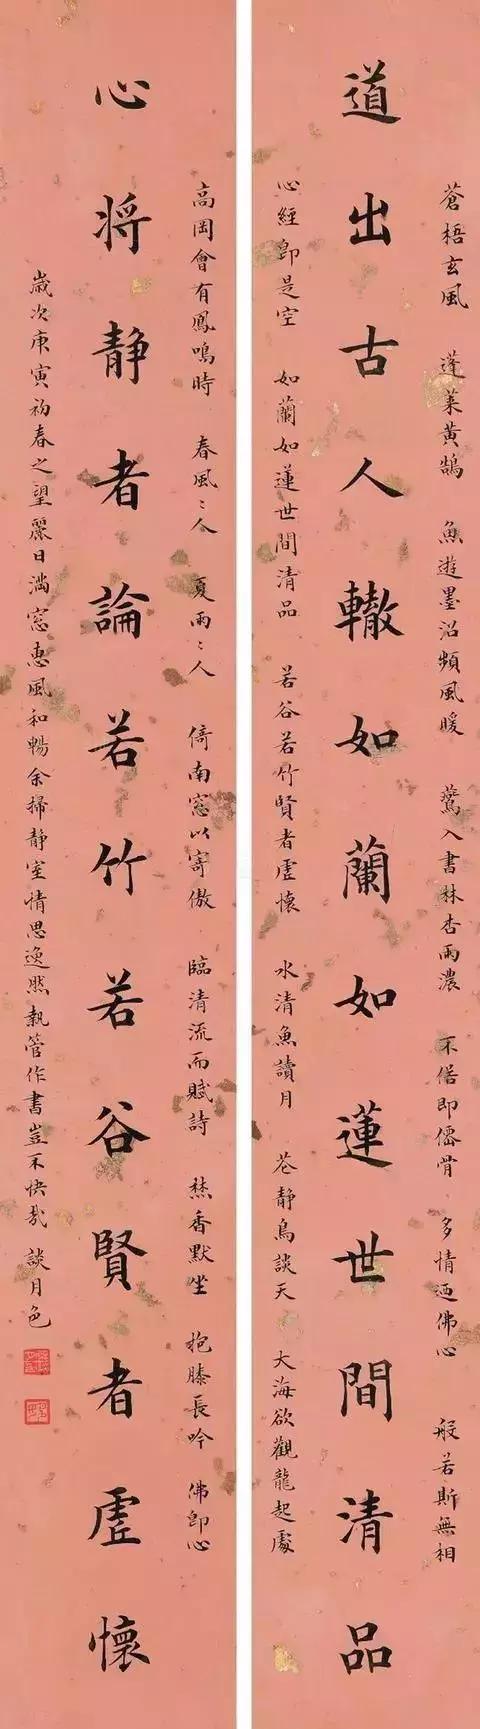 蒼梧玄風 蓬萊黃鵠 魚遊墨沼頻風暖 鶯入書林杏雨濃 不俗即僊骨 多情迺佛心 般若斯無相
道出古人轍如蘭如蓮世間清品
心經即是空 如蘭如蓮世間清品 若谷若竹賢者虛懷 水清魚讀月 花靜鳥談天 大海欲觀龍起處
高岡會有鳳鳴時 春風〻人 夏雨〻人 倚南窓以寄傲 臨清流而賦詩 焚香默坐 抱膝長吟 佛即心
心將靜者論若竹若谷賢者虛懷
歲次庚寅初春之望麗日滿窓惠風和暢余掃靜室情思逸然執管作書豈不快哉 談月色